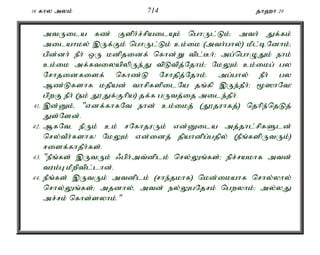 16 கால அலம் 714 தாஹா 20
அவருடைய கண் குளிர்ச்சியடையும் பொருட்டும்; அவர் துக்கம்
அடையாமல் இருக்கும் பொருட்டும் உம்மை (அவர்பால்) மீட்டினோம்;
பின்னர் நீர் ஒரு மனிதனைக் கொன்று விட்டீர்; அப்பொழுதும் நாம்
உம்மை அக்கவலையிலிருந்து விடுவித்தோம்; மேலும் உம்மைப் பல
சோதனைகளைக் கொண்டு சோதித்தோம்; அப்பால் நீர் பல
ஆண்டுகளாக மதியன் வாசிகளிடையே தங்கி இருந்தீர்; மூஸாவே!
பிறகு நீர் (நம் தூதுக்குரிய) தக்க பருவத்தை அடைந்தீர்.
41. இன்னும், "எனக்காகவே நான் உம்மைத் (தூதராகத்) தெரிந்தெடுத்
துள்ளேன்.
42. ஆகவே, நீரும் உம் சகோதரரும் என்னுடைய அத்தாட்சிகளுடன்
செல்வீர்களாக! மேலும் என்னைத் தியானிப்பதில் (நீங்களிருவரும்)
சளைக்காதீர்கள்.
43. "நீங்கள் இருவரும் ஃபிர்அவனிடம் செல்லுங்கள்; நிச்சயமாக அவன்
வரம்பு மீறிவிட்டான்.
44. நீங்கள் இருவரும் அவனிடம் (சாந்தமாக) மென்மையாக சொல்லால்
சொல்லுங்கள்; அதனால், அவன் நல்லுபதேசம் பெறலாம்; அல்லது
அச்சம் கொள்ளலாம்."